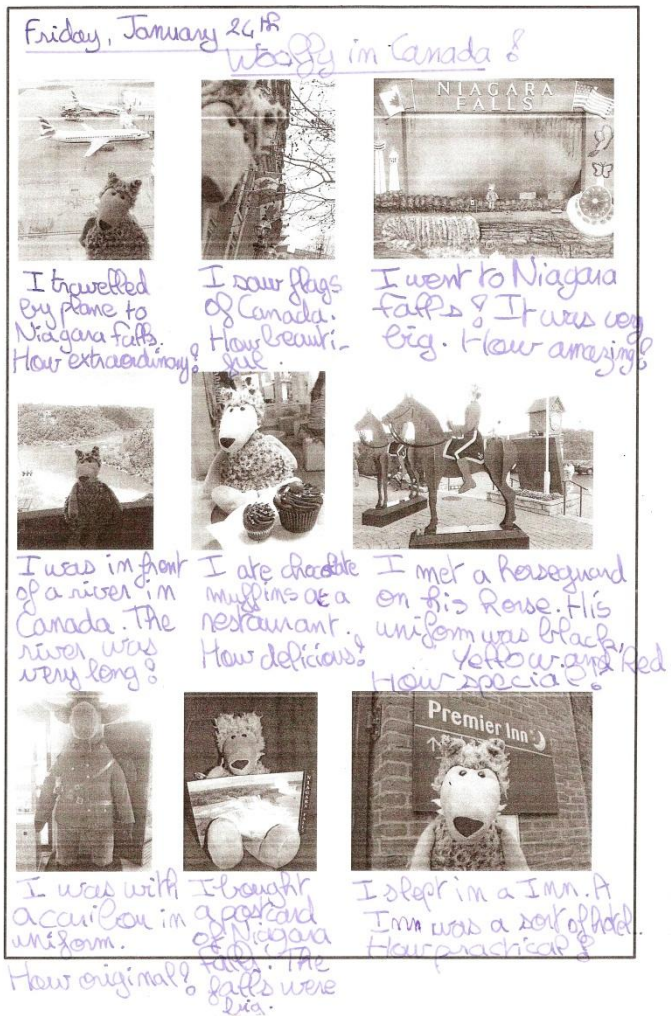 Friday, January 24th
Woolfy in Canada!
NIAGARA
FALLS
I travelled
by plane to
Niagara Falls.
How extraordinary!
I saw flags
of Canada.
How beauti-
ful.
I went to Niagara
Falls! It was very
big. How amazing!
I was in front
of a river in
Canada. The
river was
very long!
I ate chocolate
muffins at a
restaurant.
How delicious!
I met a horseguard
on his horse. His
uniform was black,
Yellow and Red
How special!
Premier Inn
I was with
a caribou in
uniform.
How original!
I bought
a postcard
of Niagara
Falls. The
falls were
big.
I slept in a Inn. A
Inn was a sort of hotel.
How practical!